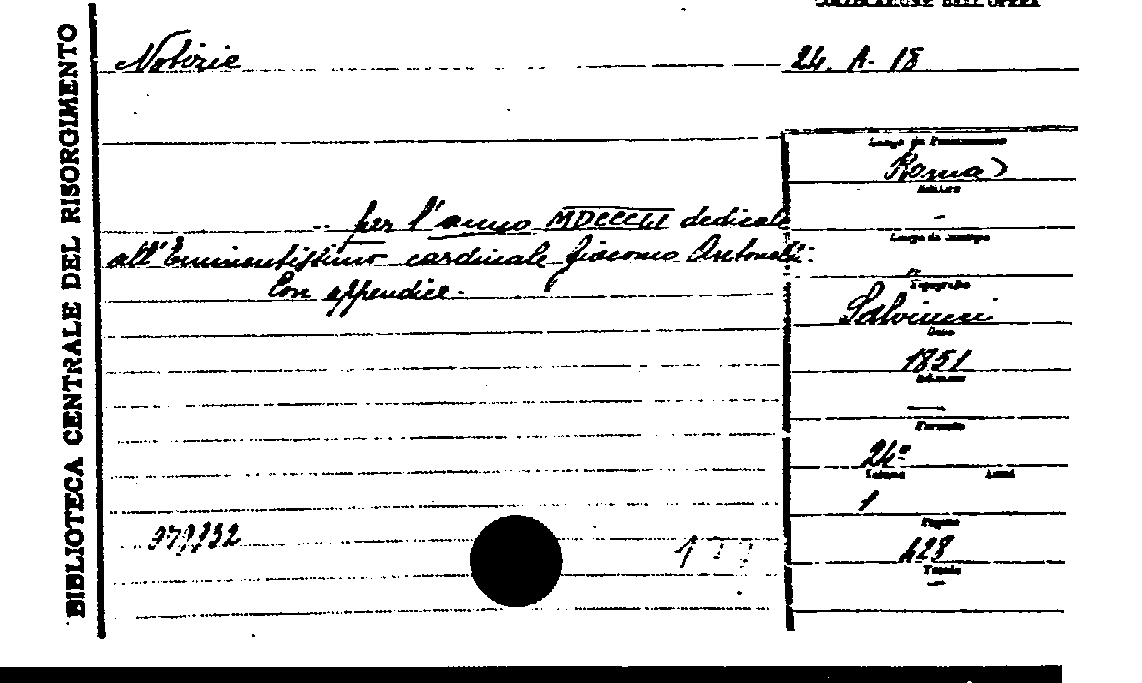 COLLOCAZIONE DELL'OPERA
BIBLIOTECA CENTRALE DEL RISORGIMENTO
Notizie
24. A. 18
per l'anno MDCCCLI dedicate
all'Eminentissimo cardinale Giacomo Antonelli.
Con appendice.
Luogo di Pubblicazione
Roma
Editore
-
Luogo di stampa
Tipografia
Salviucci
Data
1851
Edizione
—
Formato
24º
Volume
1
Pagine
428
Tavole
—